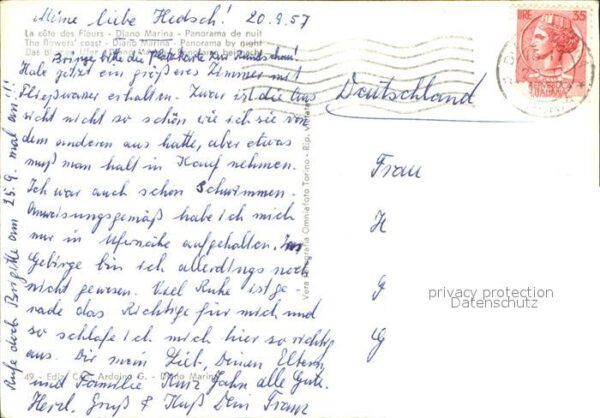 Meine liebe Hedsch! 20.9.57
La côte des Fleurs - Diano Marina - Panorama de nuit
The flowers' coast - Diano Marina - Panorama by night
Das Blumen Ufer - Diano Marina - Panorama bei nacht
Bringe bitte die Platzkarte zur Hundsehm!
Habe jetzt ein größeres Zimmer mit
Fließwasser erhalten. Zwar ist die Aus
sicht nicht so schön wie ich sie von
dem anderen aus hatte, aber etwas
muß man halt in Kauf nehmen.
Ich war auch schon Schwimmen.
Anweisungsgemäß habe ich mich
nur in Ufernähe aufgehalten. Im
Gebirge bin ich allerdings noch
nicht gewesen. Viel Ruhe ist ge-
rade das Richtige für mich und
so schlafe ich mich hier so richtig
aus. Dir mein Lieb, Deinen Eltern
und Familie Kurz Jahn alle Gute.
Herzl. Gruß & Kuß Dein Franz
49 - Ediz. Cav. Ardoino G. - Diano Marina
Rufe doch Brigitte am 25.9. mal an!!
Vera Fotografia Omniafoto Torino - Rip. Vietata
LIRE 35
Deutschland
Frau
H
G
G
privacy protection
Datenschutz